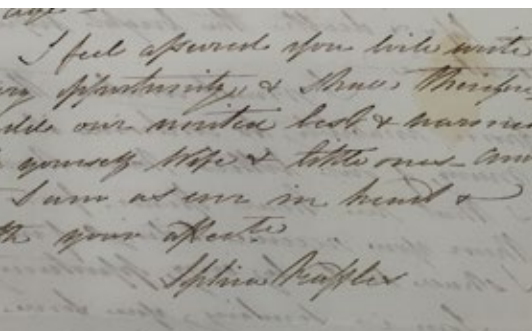 I feel assured you will write
opportunity, & shall therefore
our united best & warmest
yourself Wife & little ones - and
I am as ever in heart &
your affect.
Sophia Raffles